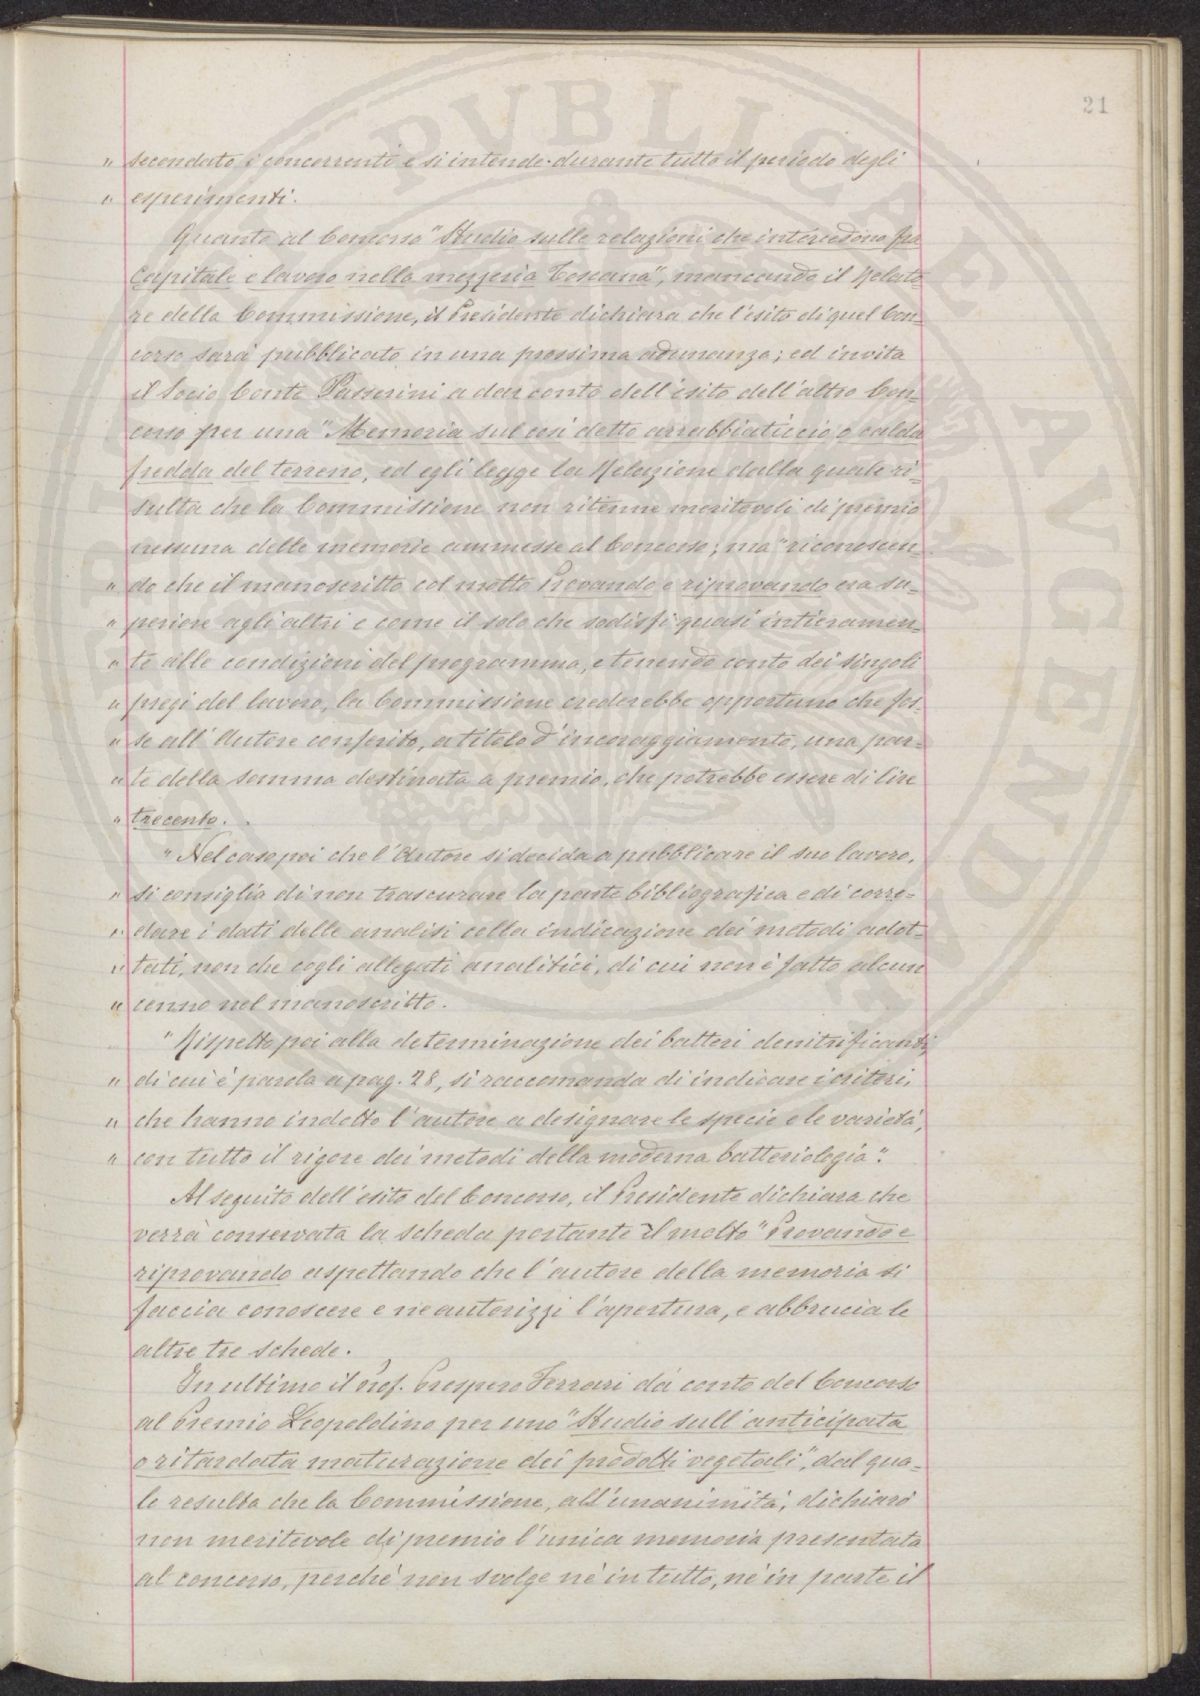 21
" secondato i concorrenti e si intende durante tutto il periodo degli
" esperimenti.
Quanto al Concorso "Studio sulle relazioni che intercedono fra
Capitale e lavoro nella mezzeria Toscana", mancando il Relato
re della Commissione, il Presidente dichiara che l'esito di quel Con=
corso sarà pubblicato in una prossima adunanza; ed invita
il Socio Conte Passerini a dar conto dell'esito dell'altro Con=
corso per una "Memoria sul così detto arrabbiaticcio o calda
fredda del terreno, ed egli legge la Relazione dalla quale ri=
sulta che la Commissione non ritenne meritevoli di premio
nessuna delle memorie ammesse al Concorso; ma "riconoscen=
" do che il manoscritto col motto Provando e riprovando era su=
" periore agli altri e come il solo che sodisfi quasi intieramen=
" te alle condizioni del programma, e tenendo conto dei singoli
" pregi del lavoro, la Commissione crederebbe opportuno che fos=
" se all'Autore conferito, a titolo d'incoraggiamento, una par=
" te della somma destinata a premio, che potrebbe essere di lire
" trecento.
" Nel caso poi che l'Autore si decida a pubblicare il suo lavoro,
" si consiglia di non trascurare la parte bibliografica e di corre=
" dare i dati delle analisi colla indicazione dei metodi adot=
" tati, non che cogli allegati analitici, di cui non è fatto alcun
" cenno nel manoscritto.
" Rispetto poi alla determinazione dei batteri denitrificanti,
" di cui è parola a pag. 28, si raccomanda di indicare i criteri,
" che hanno indotto l'autore a designare le specie e le varietà,
" con tutto il rigore dei metodi della moderna batteriologia".
Al seguito dell'esito del Concorso, il Presidente dichiara che
verrà conservata la scheda portante il motto "Provando e
riprovando aspettando che l'autore della memoria si
faccia conoscere e ne autorizzi l'apertura, e abbrucia le
altre tre schede.
In ultimo il Prof. Prospero Ferrari dà conto del Concorso
al Premio Leopoldino per uno "Studio sull'anticipata
o ritardata maturazione dei prodotti vegetali", dal qua=
le resulta che la Commissione, all'unanimità, dichiarò
non meritevole di premio l'unica memoria presentata
al concorso, perchè non svolge nè in tutto, nè in parte il
PVBLICAE AVGENDAE